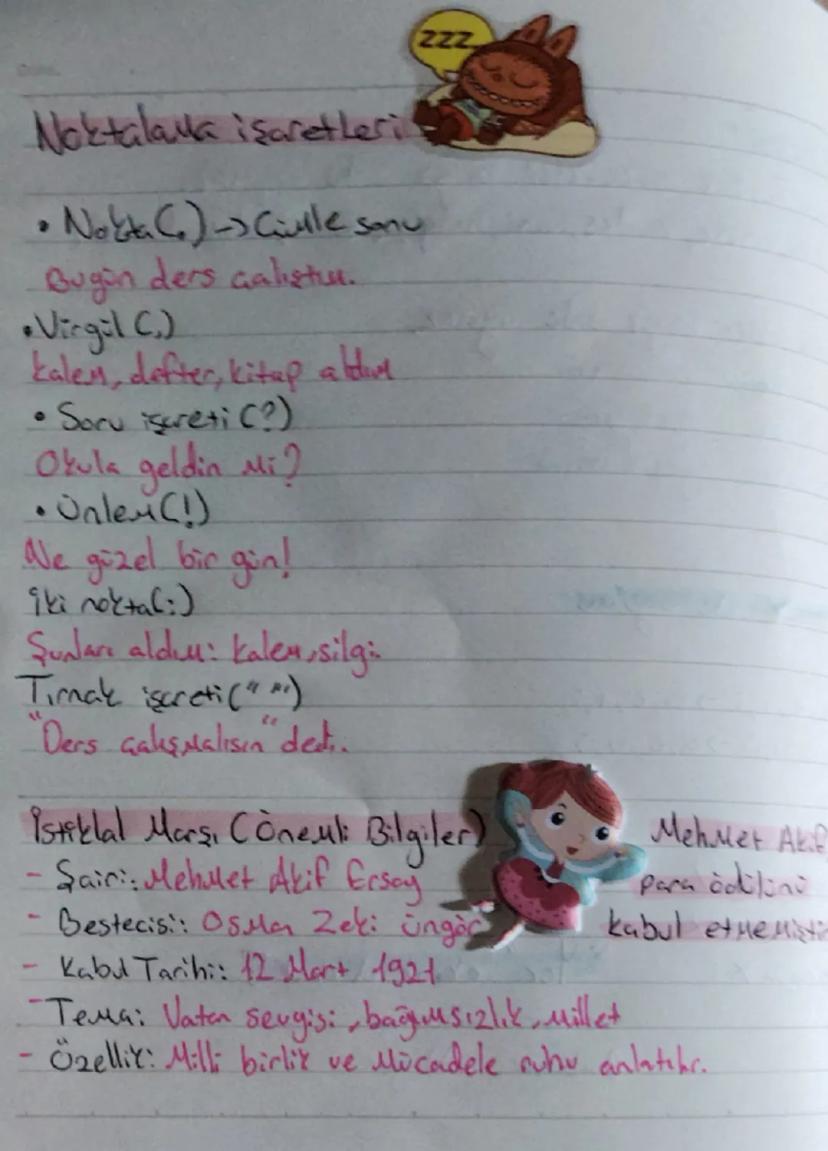 zzz
Noktalama işaretleri
• Nokta(.) -> Cümle sonu
Bugün ders çalıştım.
• Virgül (,)
kalem, defter, kitap aldım
• Soru işareti (?)
Okula geldin mi?
• Ünlem(!)
Ne güzel bir gün!
İki nokta(:)
Şunları aldım: kalem, silgi
Tırnak işareti(" ")
"Ders çalışmalısın" dedi.
İstiklal Marşı (Önemli Bilgiler)
- Şairi: Mehmet Akif Ersoy
- Bestecisi: Osman Zeki Üngör
- Kabul Tarihi: 12 Mart 1921
- Tema: Vatan sevgisi, bağımsızlık, millet
- Özellik: Milli birlik ve Mücadele ruhu anlatılır.
Mehmet Akif
para ödülünü
kabul etmemişti